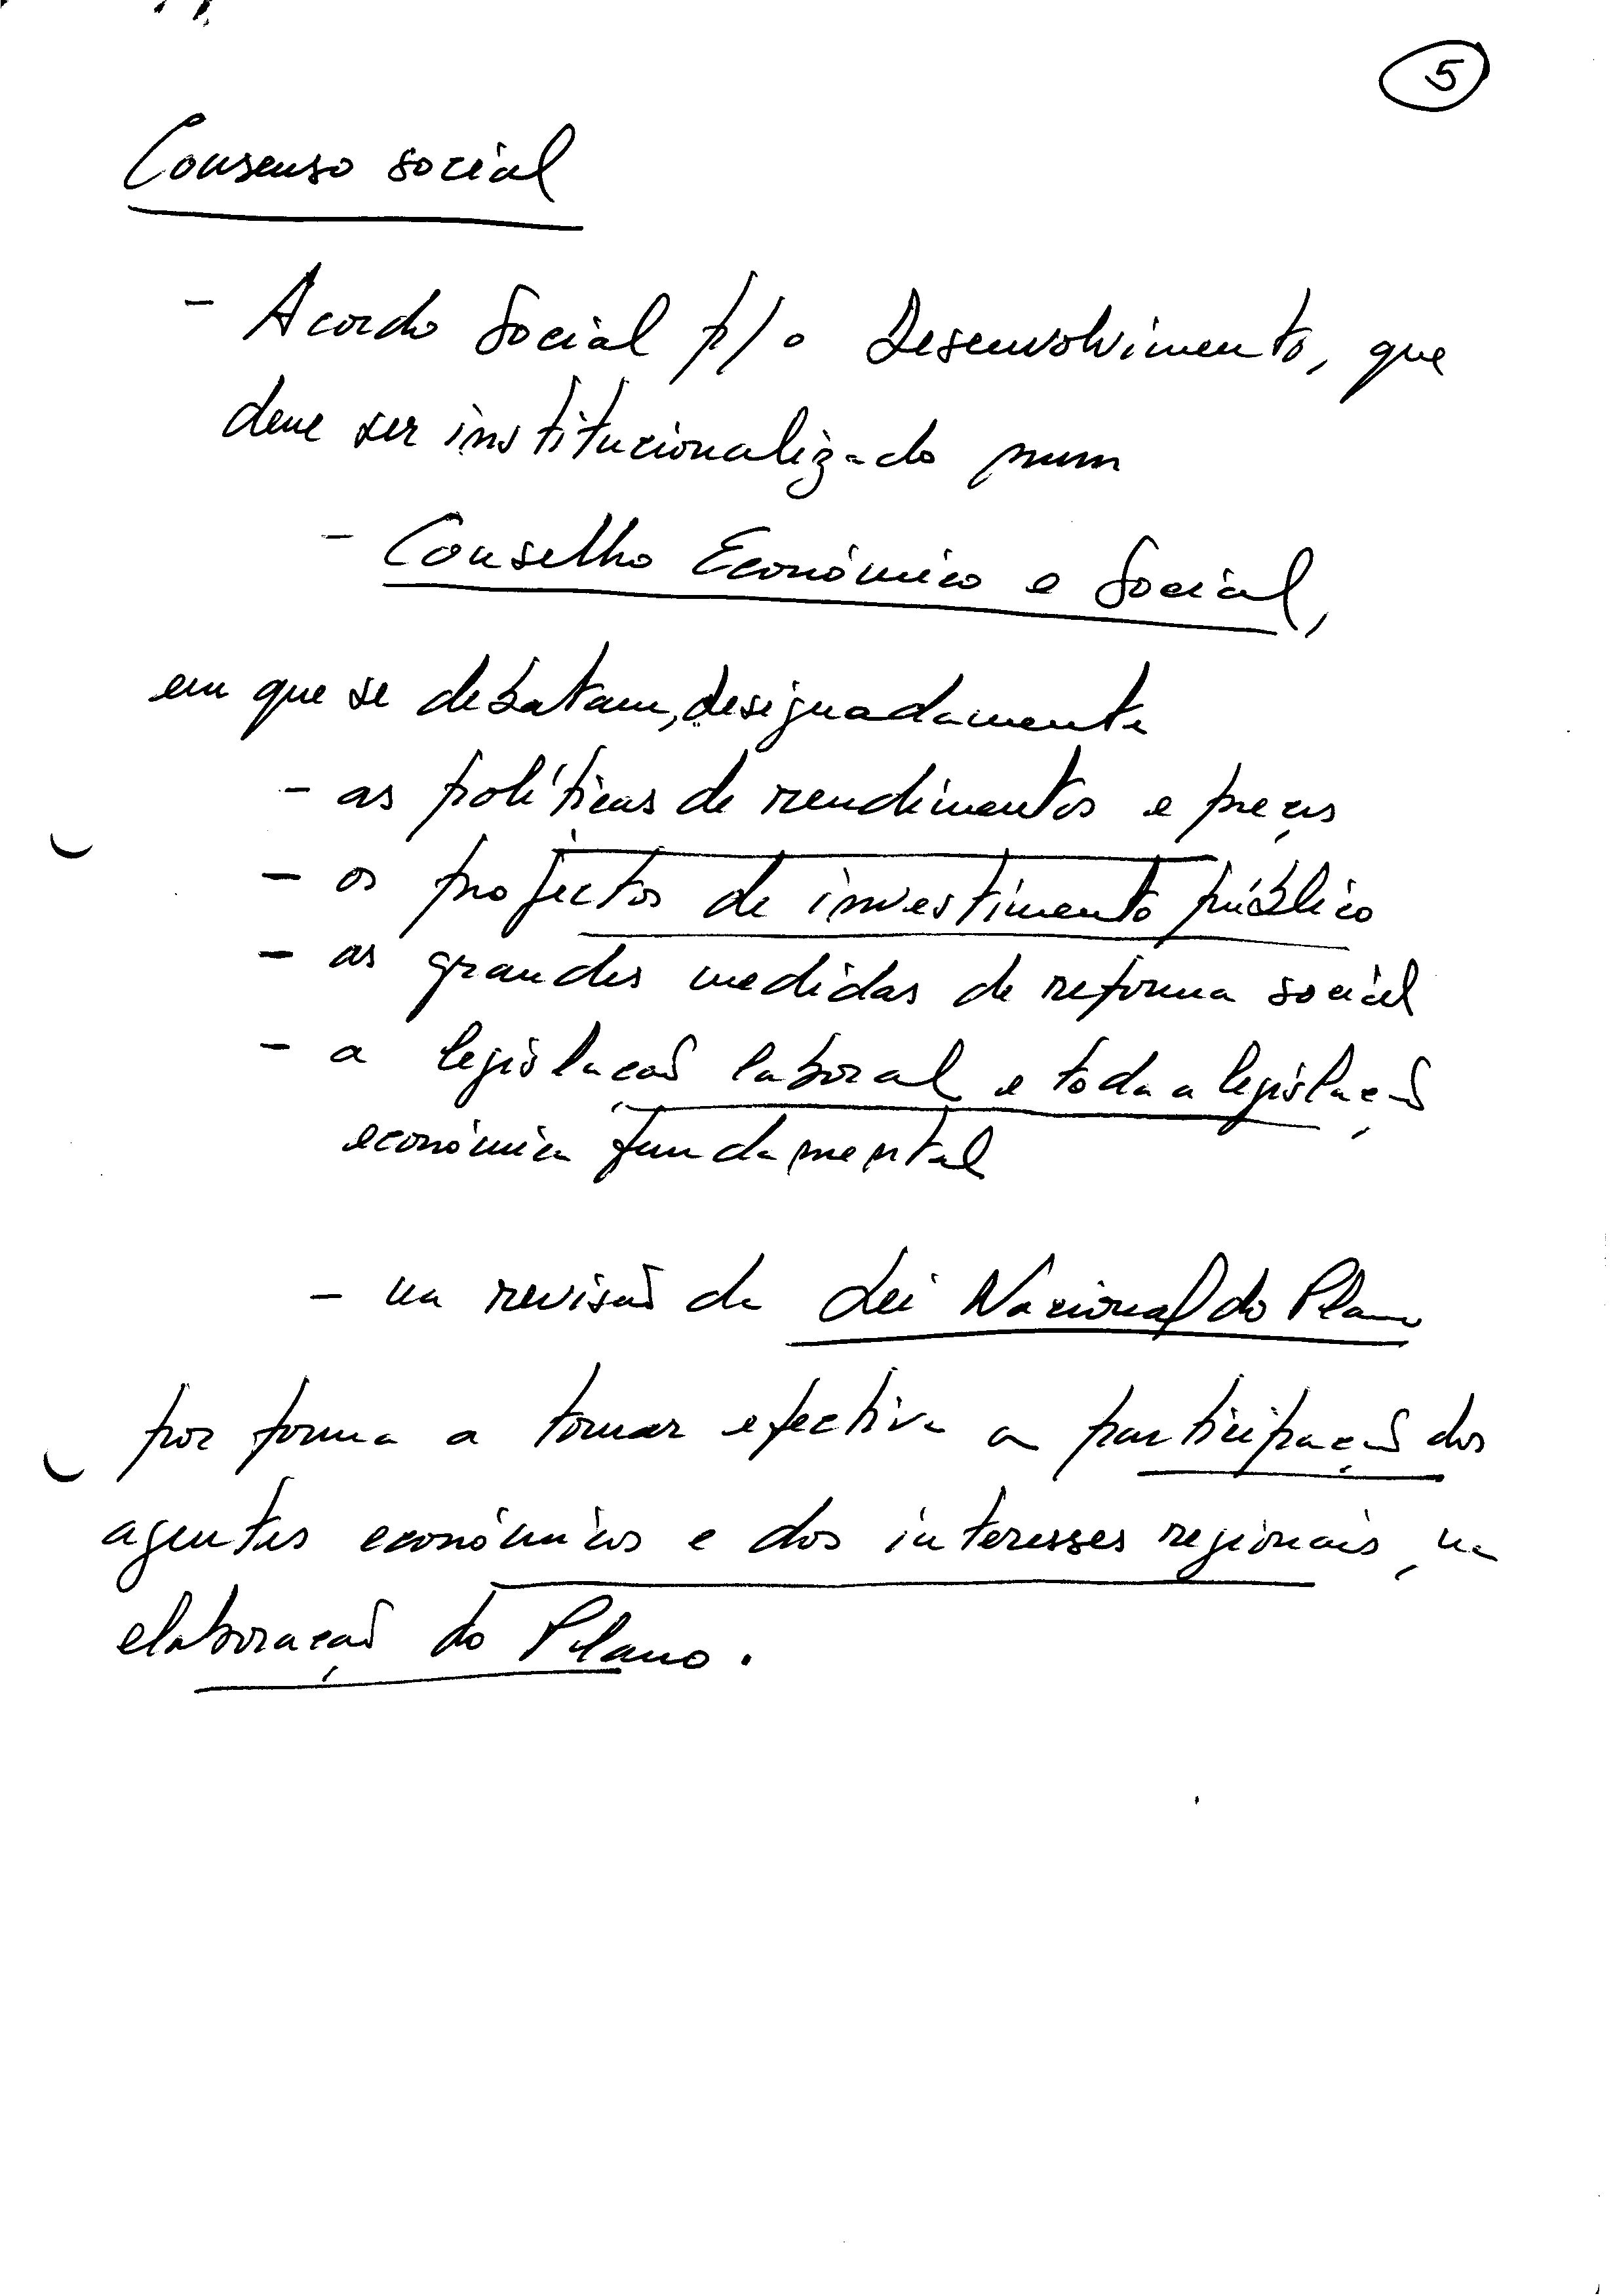 5
Consenso social
- Acordo Social p/ o Desenvolvimento, que
deve ser institucionalizado num
- Conselho Económico e Social,
em que se debatam, designadamente
- as políticas de rendimentos e preços
- os projectos de investimento público
- as grandes medidas de reforma social
- a legislação laboral e toda a legislação
económica fundamental
- na revisão da Lei Nacional do Plano
por forma a tornar efectiva a participação dos
agentes económicos e dos interesses regionais, na
elaboração do Plano.